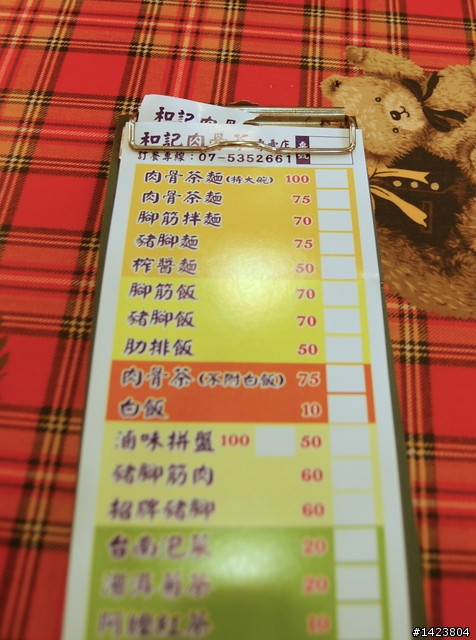 和記肉骨
和記肉骨茶專賣店
訂餐專線：07-5352661
肉骨茶麵(特大碗) 100
肉骨茶麵 75
腳筋拌麵 70
豬腳麵 75
榨醬麵 50
腳筋飯 70
豬腳飯 70
肋排飯 50
肉骨茶(不附白飯) 75
白飯 10
滷味拼盤 100 50
豬腳筋肉 60
招牌豬腳 60
台南泡菜 20
20
阿嬤紅茶 10
#1423804